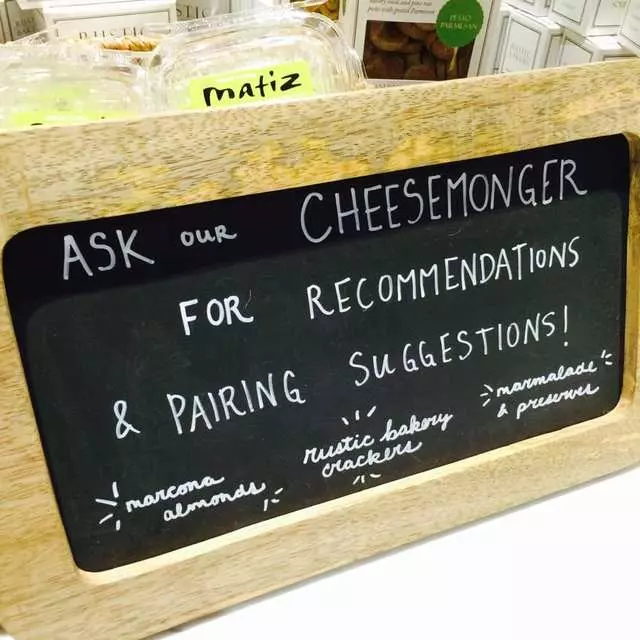 RUSTIC
PESTO
PARMESAN
matiz
ASK our CHEESEMONGER
FOR RECOMMENDATIONS
& PAIRING SUGGESTIONS!
marcona
almonds
rustic bakery
crackers
marmalade
& preserves